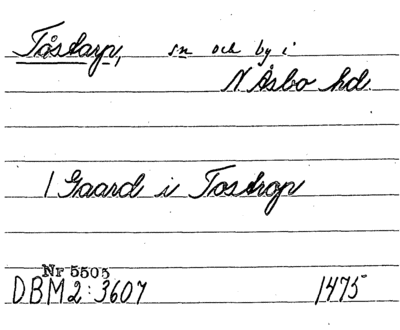 Tåstarp, sn och by i
N. Åsbo hd.
1 Gaard i Tostrop
Nr 5505
DBM 2:3607 1475